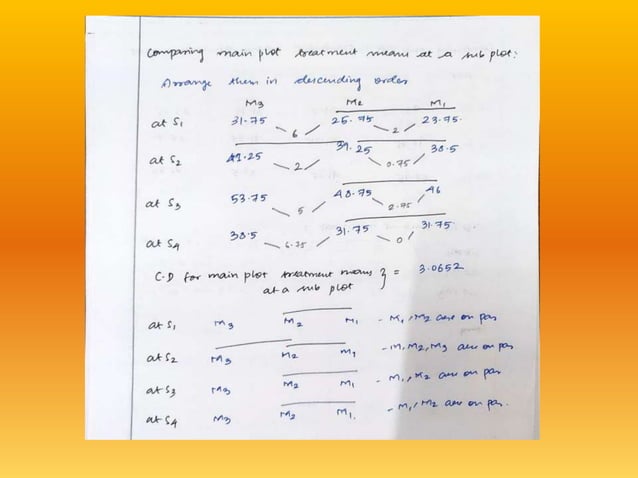 Comparing main plot treatment means at a sub plot:
Arrange them in descending order
M3 M2 M1
at S1 31.75 25.75 23.75
6 2
at S2 41.25 39.25 38.5
2 0.75
at S3 53.75 48.75 46
5 2.75
at S4 38.5 31.75 31.75
6.75 0
C.D for main plot treatment means
at a sub plot } = 3.0652
at S1 M3 M2 M1 - M1, M2 are on par
at S2 M3 M2 M1 - M1, M2, M3 are on par
at S3 M3 M2 M1 - M1, M2 are on par
at S4 M3 M2 M1. - M1, M2 are on par.